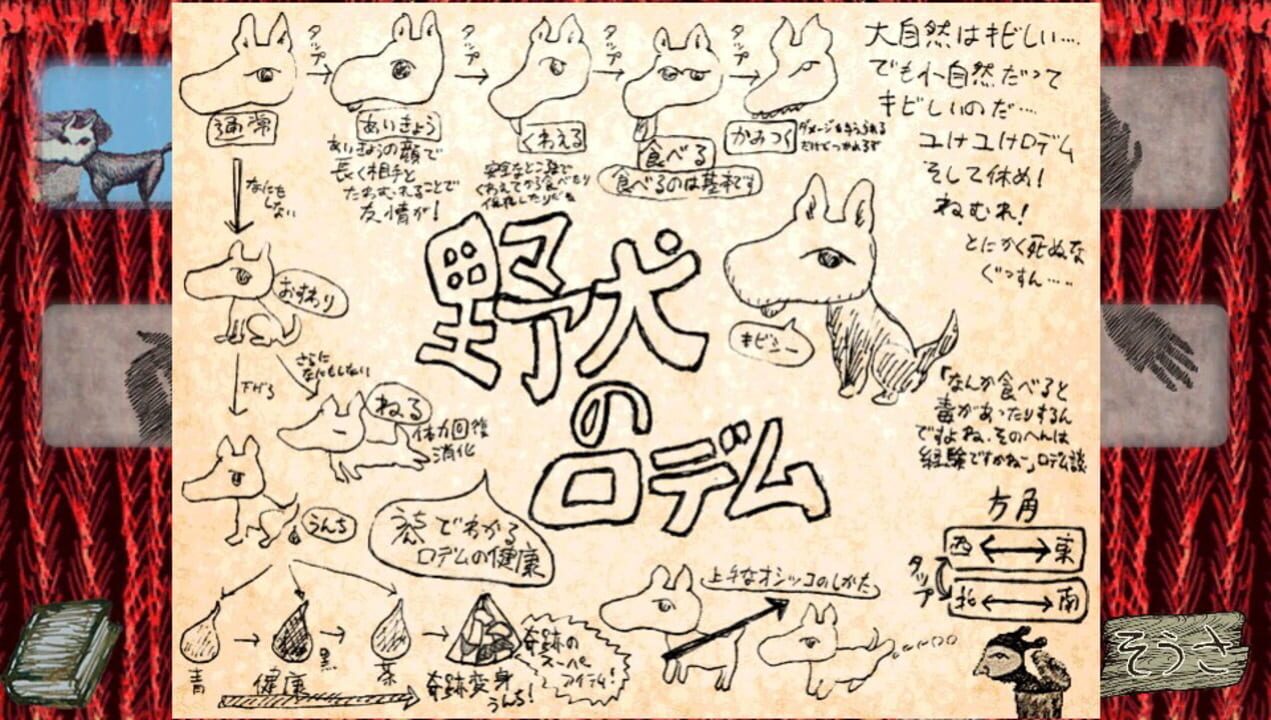 タップ
タップ
タップ
タップ
通常
あいきょう
くわえる
食べる
かみつく
食べるのは基本です
あいきょうの顔で
長く相手と
たわむれることで
友情が!
安全なとこまで
くわえてから食べたり
ダメージを与えられる
だけでつかれるぞ
大自然はキビしい…
でも小自然だって
キビしいのだ…
ユけユけロデム
そして休め!
ねむれ!
とにかく死ぬな
ぐっすん……
なにも
しない
おすわり
さらに
なにもしない
下げる
ねる
体力回復
消化
うんち
野犬
の
ロデム
キビシー
「なんか食べると
毒があったりするん
ですよね、そのへんは
経験ですかねー」ロデム談
うんちでわかる
ロデムの健康
青
黒
茶
健康
奇跡変身
うんち!
奇跡の
スーパー
アイテム!
上手なオシッコのしかた
方角
西
東
タップ
北
南
そうさ